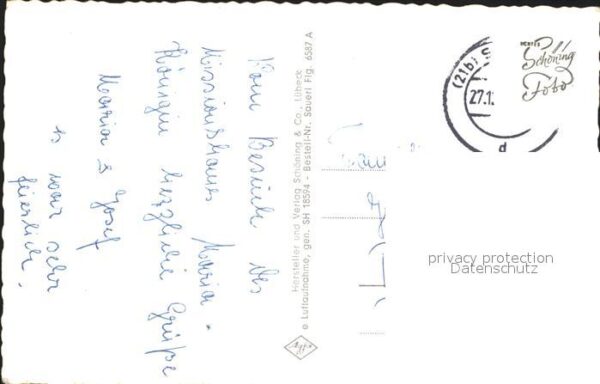 Vom Besuch des
Missionshauses Maria-
Königin herzliche Grüße
Maria & Josef
Es war sehr
feierlich.
Hersteller und Verlag Schöning & Co., Lübeck
e Luftaufnahme, gen. SH 18594 - Bestell-Nr. Sauerl Flg. 6587 A
Agfa
(21b)
27.1
d
Schöning
Foto
privacy protection
Datenschutz